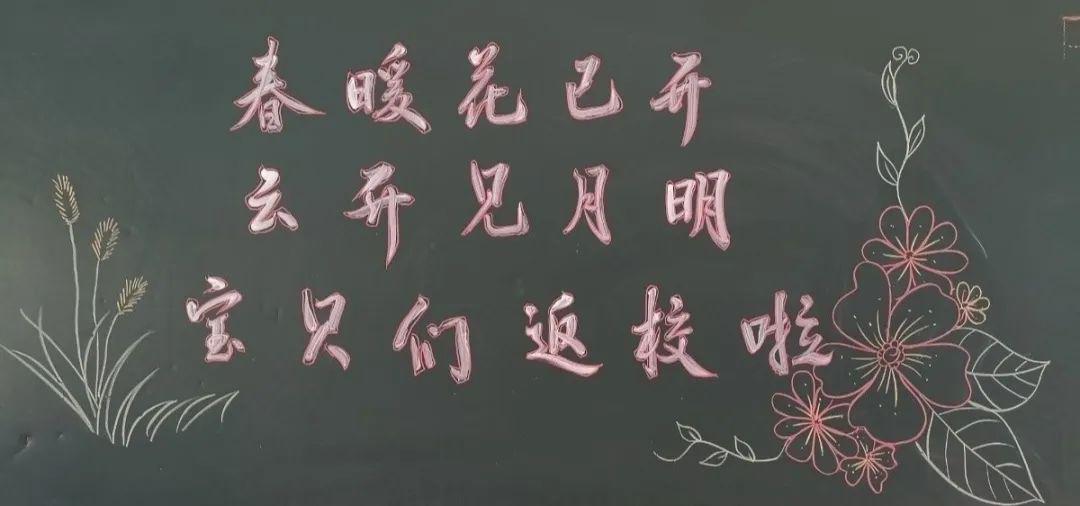 春暖花已开
云开见月明
宝贝们返校啦